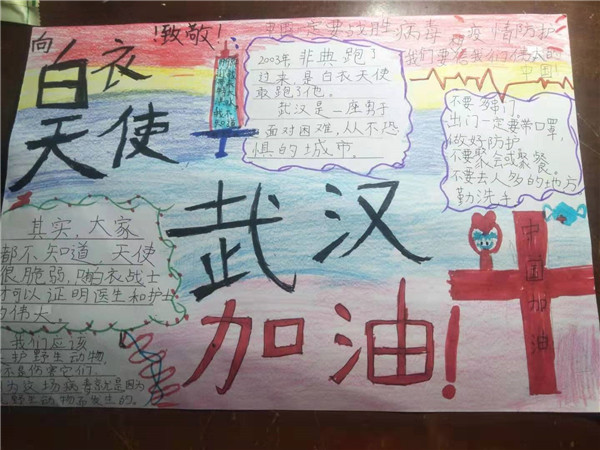 向
白衣
天使
！致敬！
一定要战胜病毒 疫情防护
我们要
中国！
2003年 非典跑了
过来，是白衣天使
取跑了他。
武汉是一座勇于
面对困难，从不恐
惧的城市。
不要
出门一定要带口罩，
做好防护
不要聚会或聚餐
不要去人多的地方
勤洗手
武汉
加油！
中国加油
其实，大家
都不知道，天使
很脆弱，白衣战士
可以证明医生和护士
伟大。
我们应该
护野生动物
不是伤害它们。
为这场病毒就是因为
野生动物而发生的。